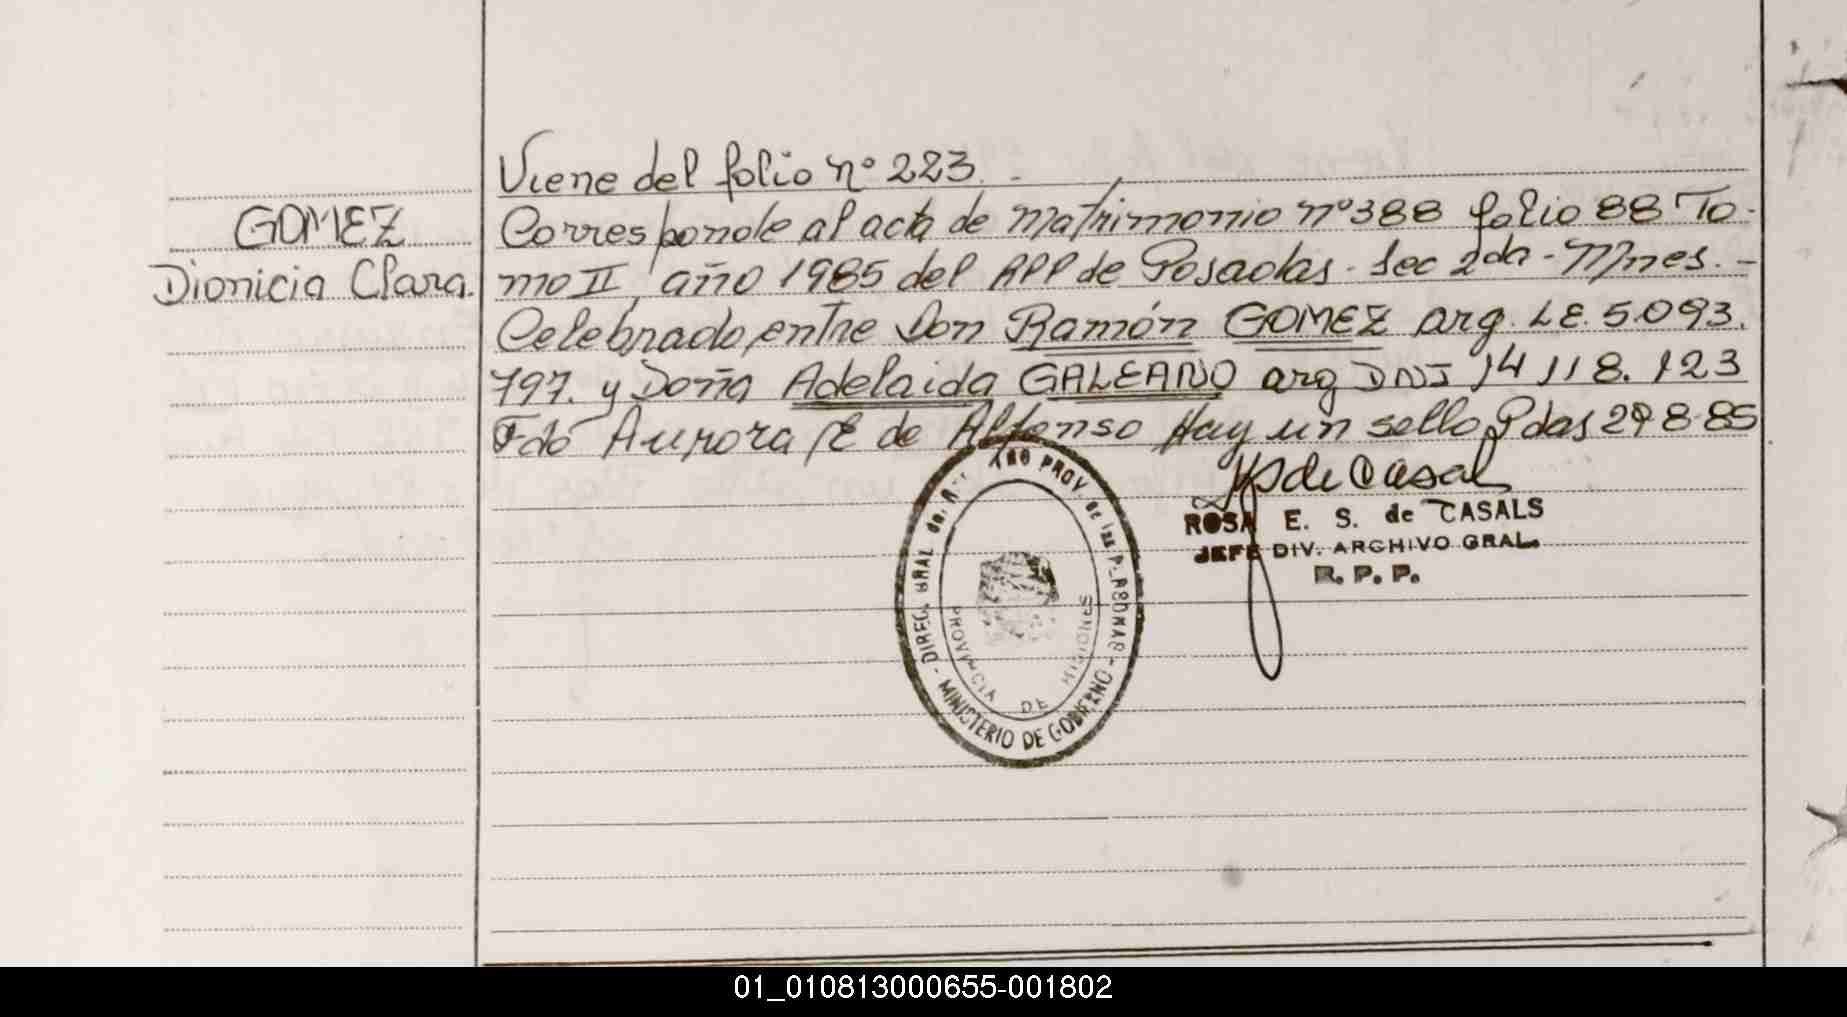 Viene del folio nº 223. -
GOMEZ
Dionicia Clara.
Corresponde al acta de matrimonio nº388 folio 88 To-
mo II, año 1985 del RPP de Posadas. Sec 2da - Mnes. -
Celebrado, entre Don Ramón GOMEZ arg. LE. 5.093.
797. y Doña Adelaida GALEANO arg DNI 14 118. 123
Fdo Aurora E de Alfonso Hay un sello Pdas 29 8 85
ROSA E. S. de CASALS
JEFE DIV. ARCHIVO GRAL.
R. P. P.
PROV. de las PERSONAS - MINISTERIO DE GOBIERNO - DIREC. GRAL del
PROVINCIA DE MISIONES
01_010813000655-001802